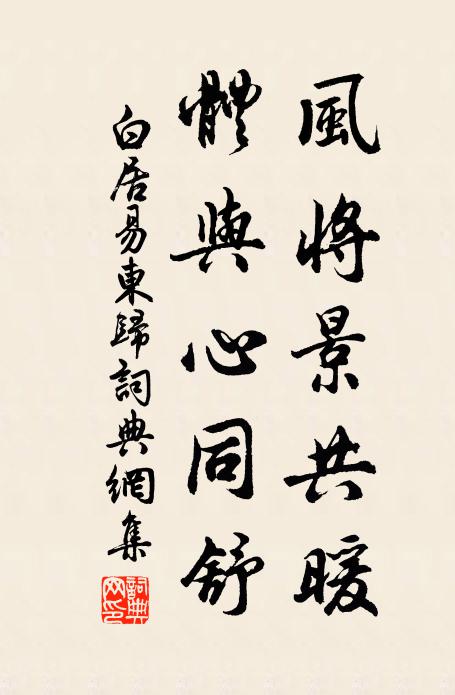 風將景共暖
體與心同舒
白居易東歸詞典網集
詞典
网印